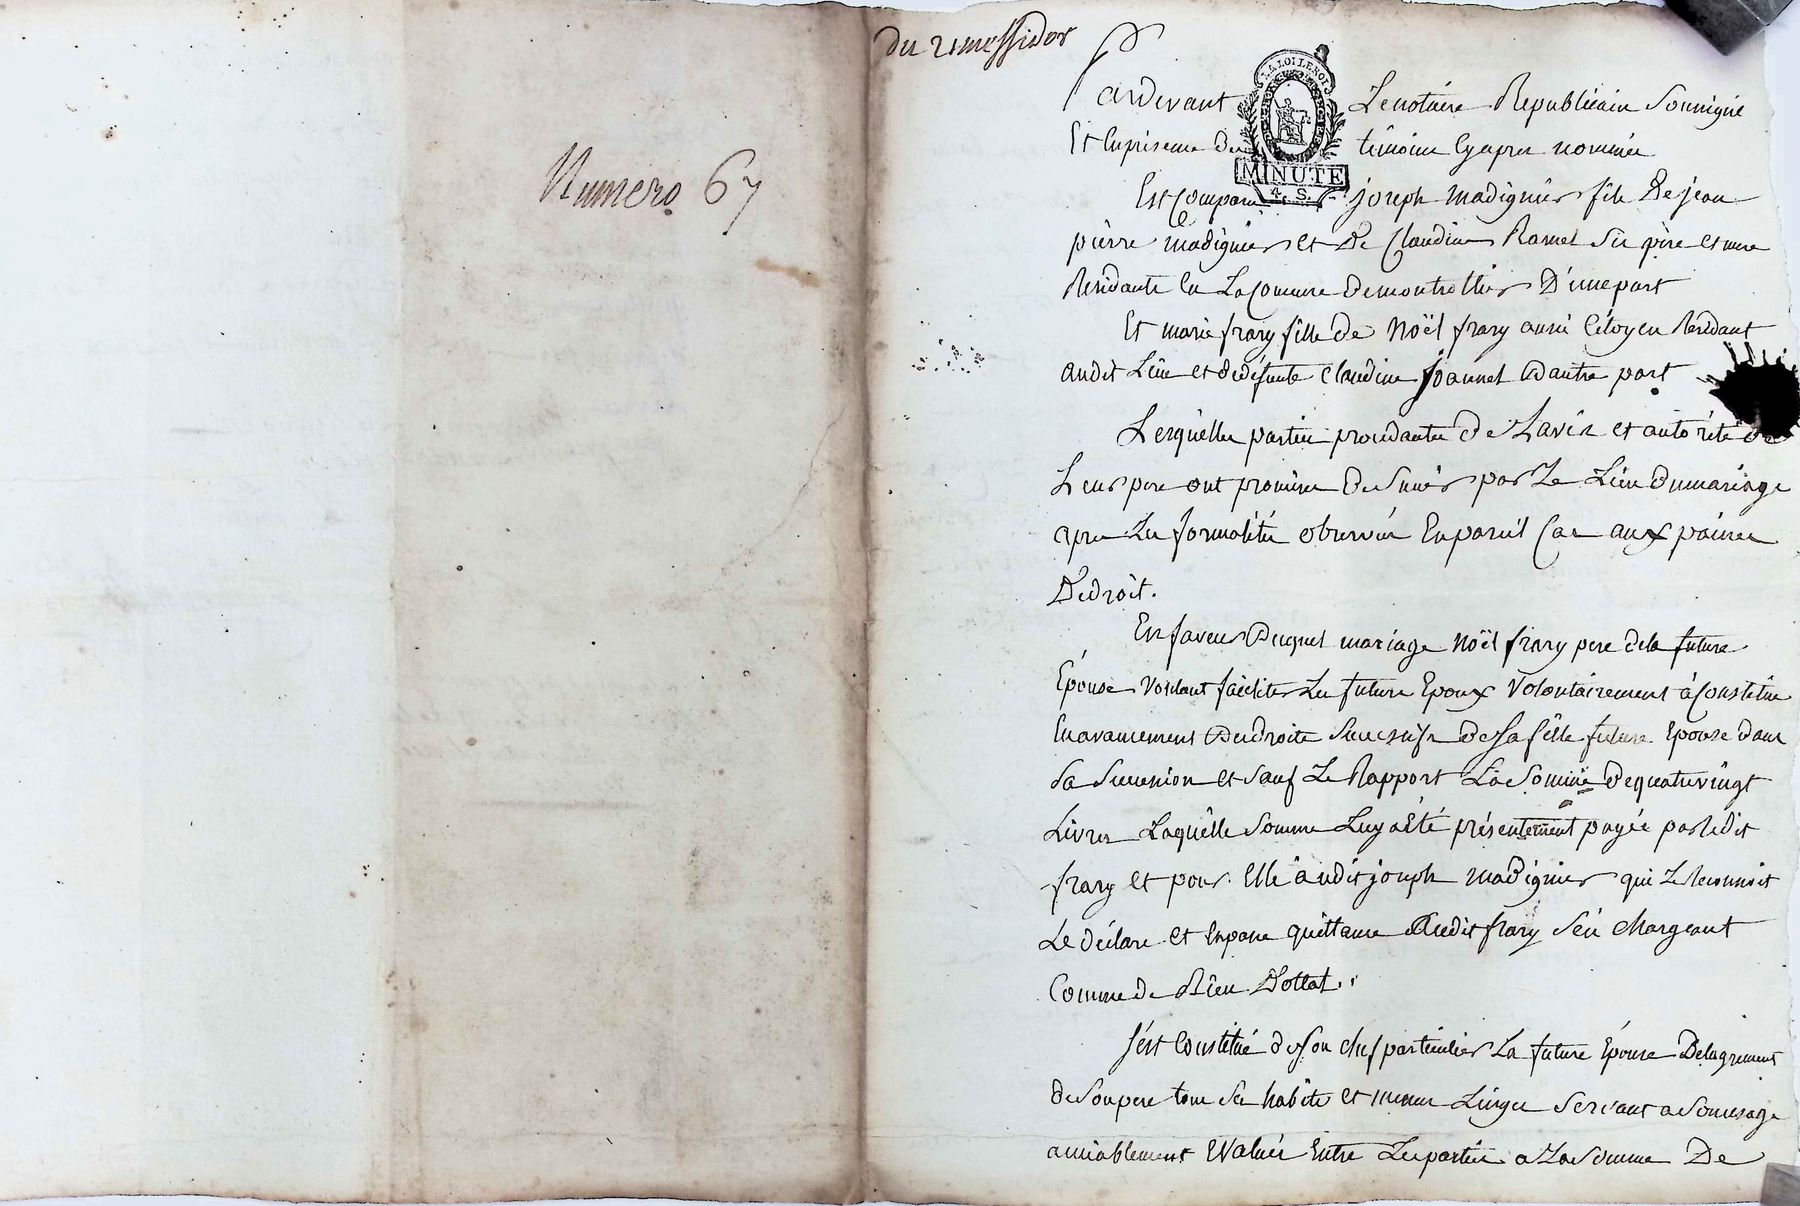 Numero 67
du 21 messidor
Pardevant Le notaire Republicain Soussigné
Et En présence des témoins Cy apres nommés
LA LOI LE ROI
MINUTE
4. S.
Est Comparu joseph madignier fils De jean
pierre madignier et De Claudine Ramel Ses père et mere
Residants En La Commune De montrottier D'une part
Et marie frary fille De Noël frary aussi Citoyen Residant
audit Lieu et de défunte Claudine Joannet D'autre part
Lesquelles parties procedantes De L'avis et autorité De
Leurs pere ont promises De S'unir par Le Lien du mariage
apres Les formalités observées En pareil Cas aux peines
De droit.
En faveur Duquel mariage Noël frary pere de la future
Épouse Voulant faciliter Les future Epoux Volontairement à Constitué
En avancement Des droits Successifs De Sa fille future Epouse dans
Sa Succession et Sauf Le Rapport La Somme De quatrevingt
Livres Laquelle Somme Luy a Eté présentement payée par ledit
frary et pour Elle audit joseph madignier qui Le Reconnoit
Le déclare et En passe quittance Audit frary S'en Chargeant
Comme de Bien Dottal.
S'est Constitué de Son chef particulier La future Épouse De l'agrement
de Son pere tous Ses habits et menus Linges Servant a Son Usage
amiablement Evalués Entre Les parties a La Somme De